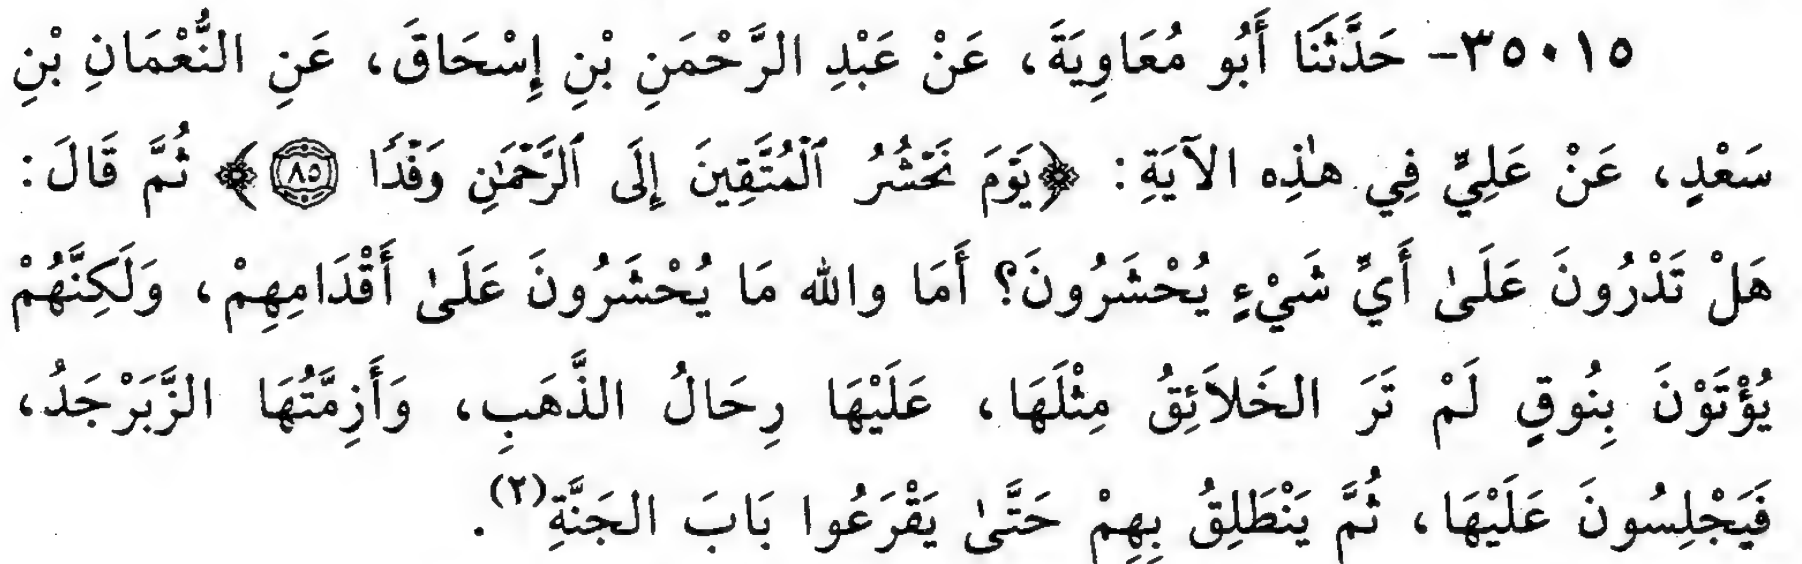 ٣٥٠١٥- حَدَّثَنَا أَبُو مُعَاوِيَةَ، عَنْ عَبْدِ الرَّحْمَنِ بْنِ إِسْحَاقَ، عَنِ النُّعْمَانِ بْنِ
سَعْدٍ، عَنْ عَلِيٍّ فِي هٰذِه الآيَةِ: ﴿يَوْمَ نَحْشُرُ ٱلْمُتَّقِينَ إِلَى ٱلرَّحْمَٰنِ وَفْدًا ٨٥﴾ ثُمَّ قَالَ:
هَلْ تَدْرُونَ عَلَىٰ أَيِّ شَيْءٍ يُحْشَرُونَ؟ أَمَا والله مَا يُحْشَرُونَ عَلَىٰ أَقْدَامِهِمْ، وَلَكِنَّهُمْ
يُؤْتَوْنَ بِنُوقٍ لَمْ تَرَ الخَلاَئِقُ مِثْلَهَا، عَلَيْهَا رِحَالُ الذَّهَبِ، وَأَزِمَّتُهَا الزَّبَرْجَدُ،
فَيَجْلِسُونَ عَلَيْهَا، ثُمَّ يَنْطَلِقُ بِهِمْ حَتَّىٰ يَقْرَعُوا بَابَ الجَنَّةِ(٢).